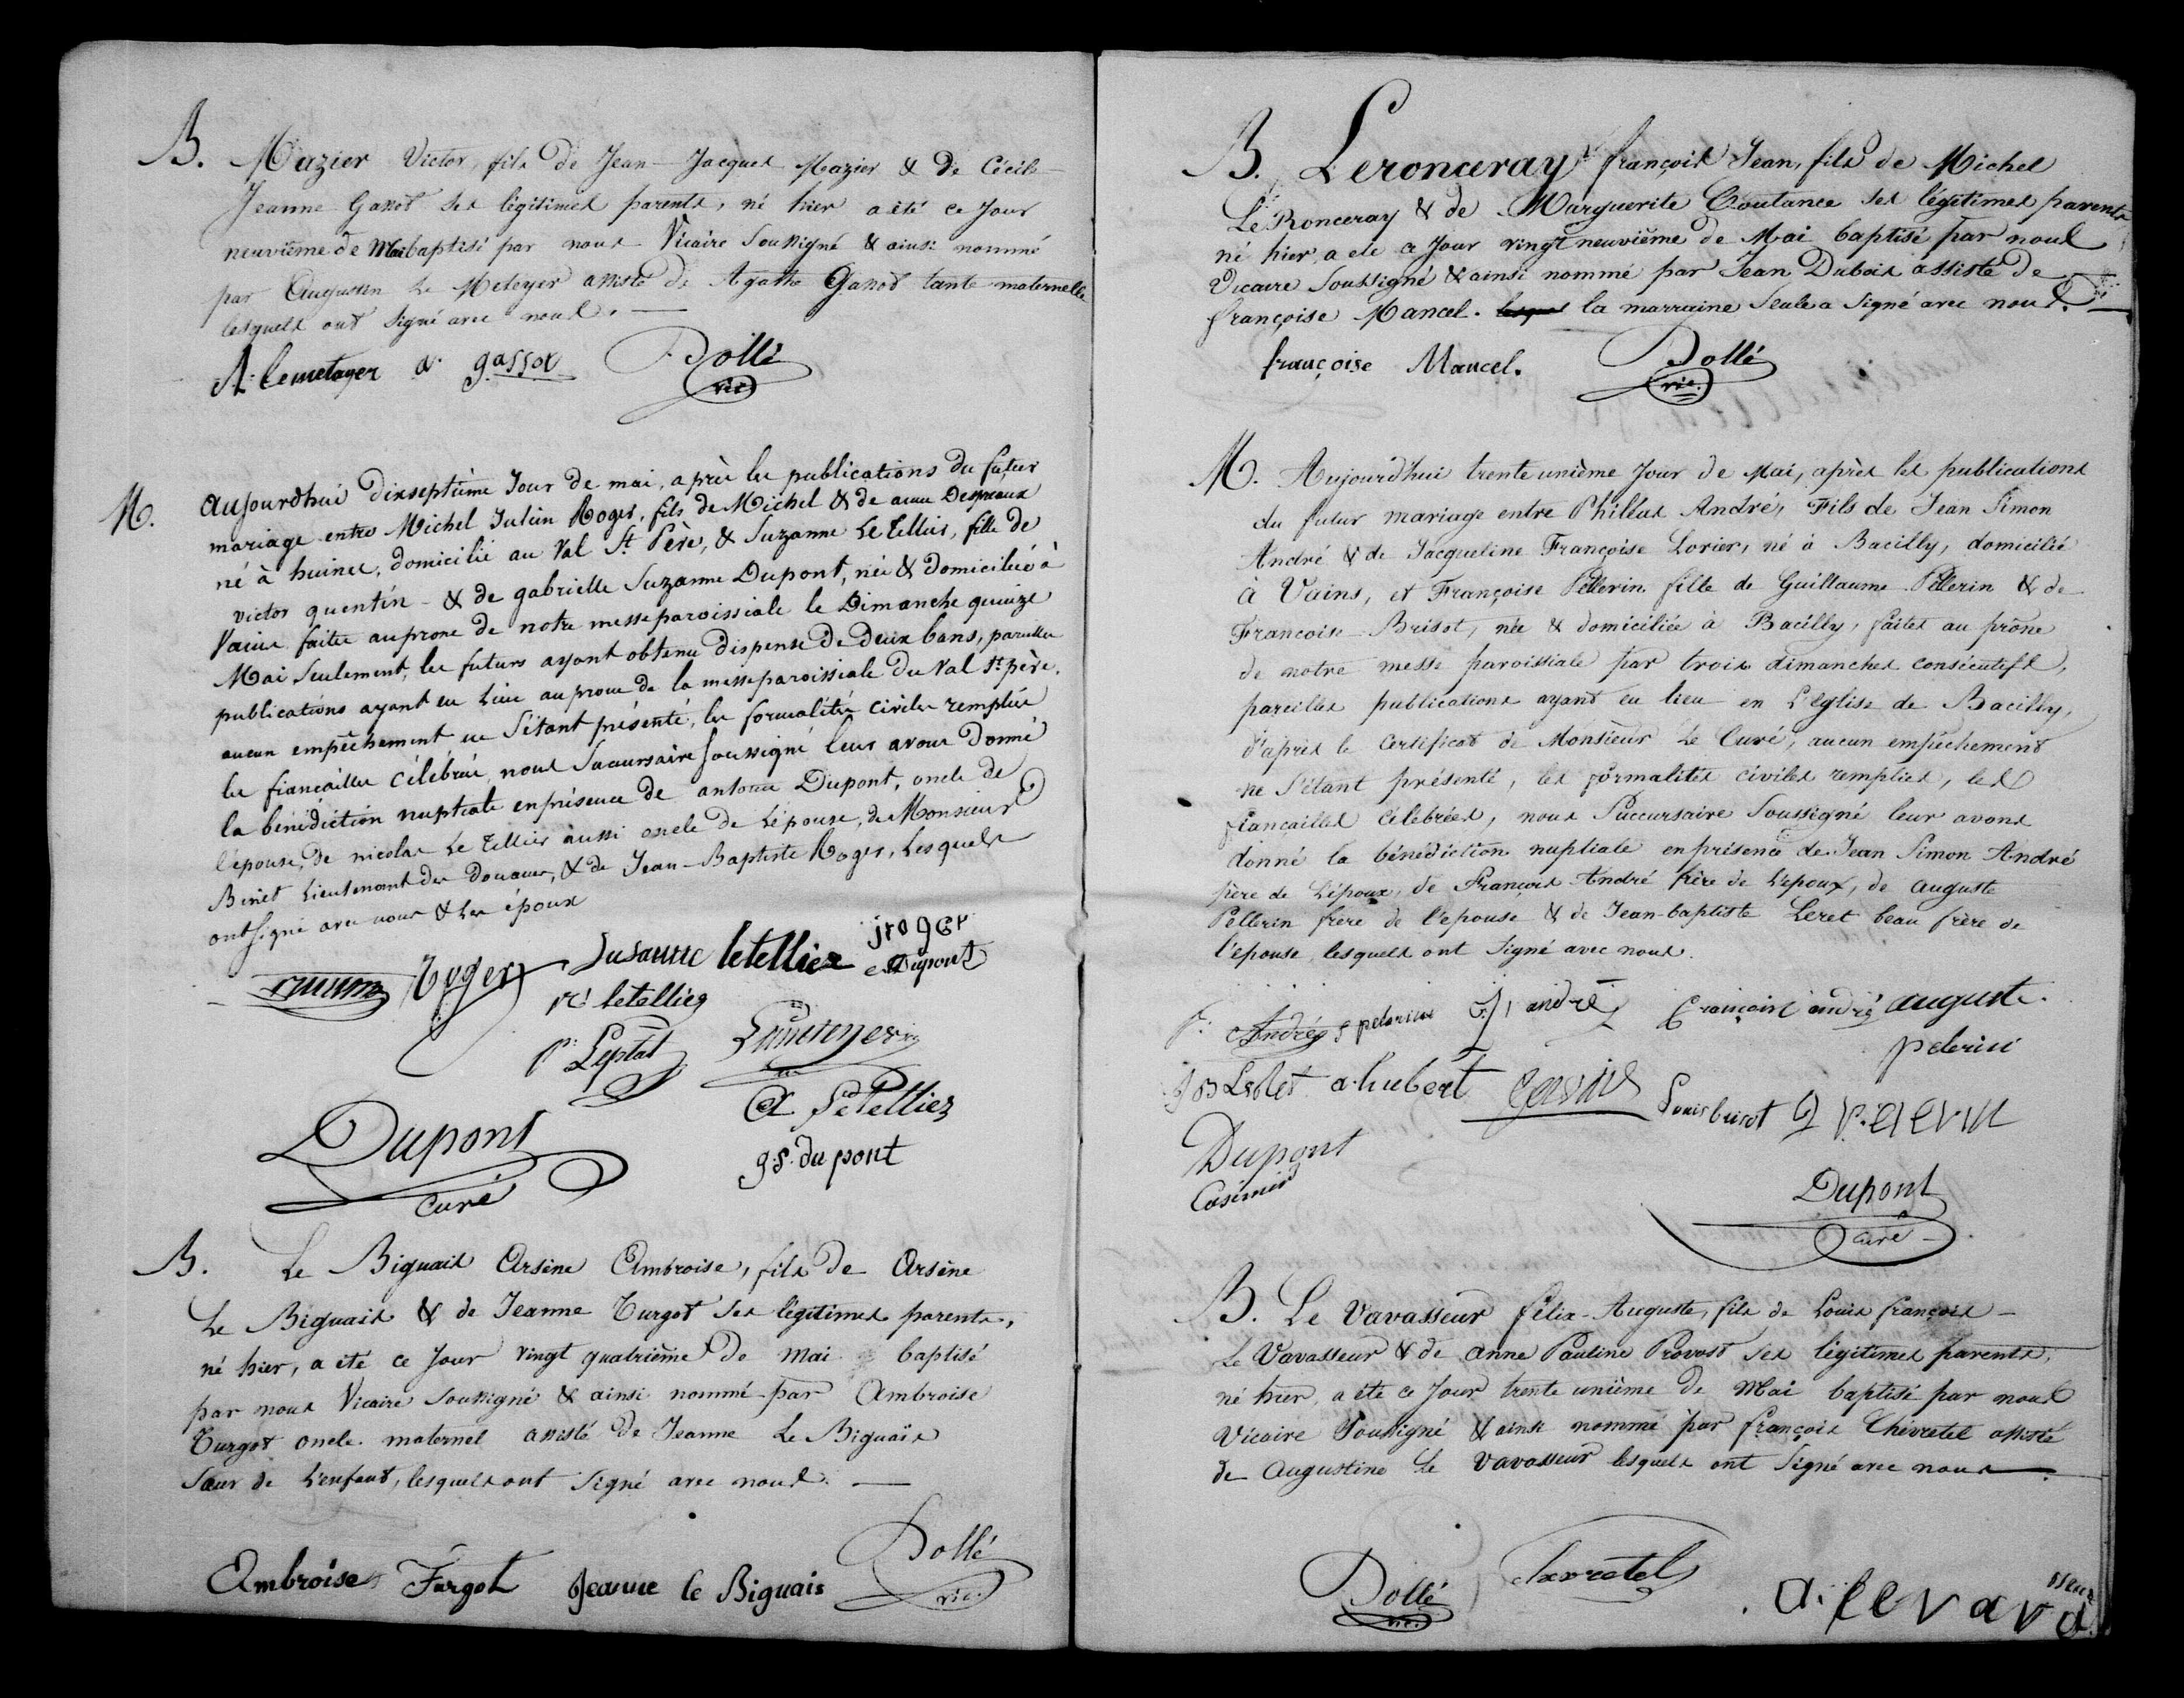 B. Mazier Victor, fils de Jean-Jacques Mazier & de Cécile
Jeanne Gassot ses légitimes parents, né hier a été ce Jour
neuvième de Mai baptisé par nous Vicaire Soussigné & ainsi nommé
par Augustin Le Meteyer assisté de Agathe Gassot tante maternelle
lesquels ont Signé avec nous.
A. lemetayer a. gassot Dollé
vic
M. Aujourd'hui dixseptième Jour de mai, après les publications du futur
mariage entre Michel Julien Roger, fils de Michel & de anne Despreaux
né à huines, domicilié au Val St Père, & Suzanne Le Tellier, fille de
victor quentin & de gabrielle Suzanne Dupont, née & domiciliée à
Vains faites au prone de notre messe paroissiale le Dimanche quinze
Mai Seulement, les futurs ayant obtenu dispense de deux bans, pareilles
publications ayant eu Lieu au prone de la messe paroissiale du Val St père.
aucun empêchement ne S'étant présenté, les formalités civiles remplies
les fiançailles célébrées, nous Succursaire Soussigné leur avons Donné
la bénédiction nuptiale en présence de antoine Dupont, oncle de
l'épouse, de nicolas Le Tellier aussi oncle de L'épouse, de Monsieur
Binet Lieutenant des Douanes, & de Jean-Baptiste Roger, Lesquels
ont Signé avec nous & Les époux
Roger Susanne letellier jroger
letellier Dupont
Dupont
curé
Le Tellier
g.s. dupont
B. Le Biguais Arsène Ambroise, fils de Arsène
Le Biguais & de Jeanne Turgot ses légitimes parents,
né hier, a été ce Jour vingt quatrième de mai baptisé
par nous Vicaire Soussigné & ainsi nommé par Ambroise
Turgot oncle maternel assisté de Jeanne Le Biguais
Sœur de L'enfant, lesquels ont Signé avec nous.
Ambroise Turgot Jeanne le Biguais Dollé
vic.
B. Leronceray françois Jean, fils de Michel
Le Ronceray & de Marguerite Coutance ses légitimes parents
né hier, a été ce Jour vingt neuvième de Mai baptisé par nous
Vicaire Soussigné & ainsi nommé par Jean Dubois assisté de
françoise Mancel. la marraine Seule a Signé avec nous.
françoise Mancel. Dollé
vic.
M. Aujourd'hui trente unième Jour de Mai, après les publications
du futur mariage entre Philéas André, Fils de Jean Simon
André & de Jacqueline Françoise Lorier, né à Bacilly, domicilié
à Vains, et Françoise Pellerin fille de Guillaume Pellerin & de
Françoise Brisot, née & domiciliée à Bacilly, faites au prône
de notre messe paroissiale par trois dimanches consécutifs,
pareilles publications ayant eu lieu en L'église de Bacilly,
d'après le Certificat de Monsieur Le Curé, aucun empêchement
ne S'étant présenté, les formalités civiles remplies, les
fiançailles célébrées, nous Succursaire Soussigné leur avons
donné la bénédiction nuptiale en présence de Jean Simon André
père de L'époux, de François André frère de L'époux, de auguste
Pellerin frère de l'epouse & de Jean-baptiste Leret beau frère de
l'épouse, lesquels ont Signé avec nous.
André f pelerin andré françois andré auguste
pelerin
a. hubert Louis brisot
Dupont
Casimir
Dupont
curé
B. Le Vavasseur félix-Auguste, fils de Louis françois
Le Vavasseur & de anne Pauline Provost ses légitimes parents,
né hier, a été ce Jour trente unième de Mai baptisé par nous
Vicaire Soussigné & ainsi nommé par françois Chevretel assisté
de Augustine Le Vavasseur lesquels ont Signé avec nous
Dollé Chevretel a. levava
vic. sseur